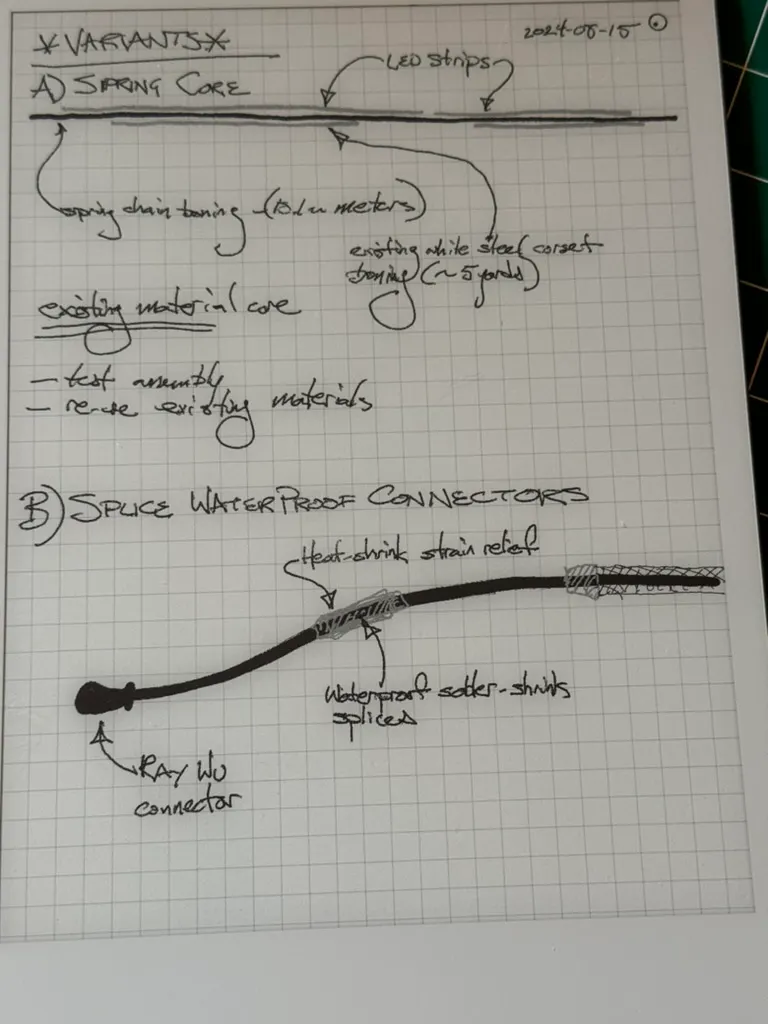 *VARIANTS*
2024-08-15
LED strips
A) SPRING CORE
spring chain boning ( meters)
existing white steel corset
boning (~5 yards)
existing material core
— test assembly
— re-use existing materials
B) SPLICE WATERPROOF CONNECTORS
Heat-shrink strain relief
Waterproof solder-shrink
splices
RAY WU
connector